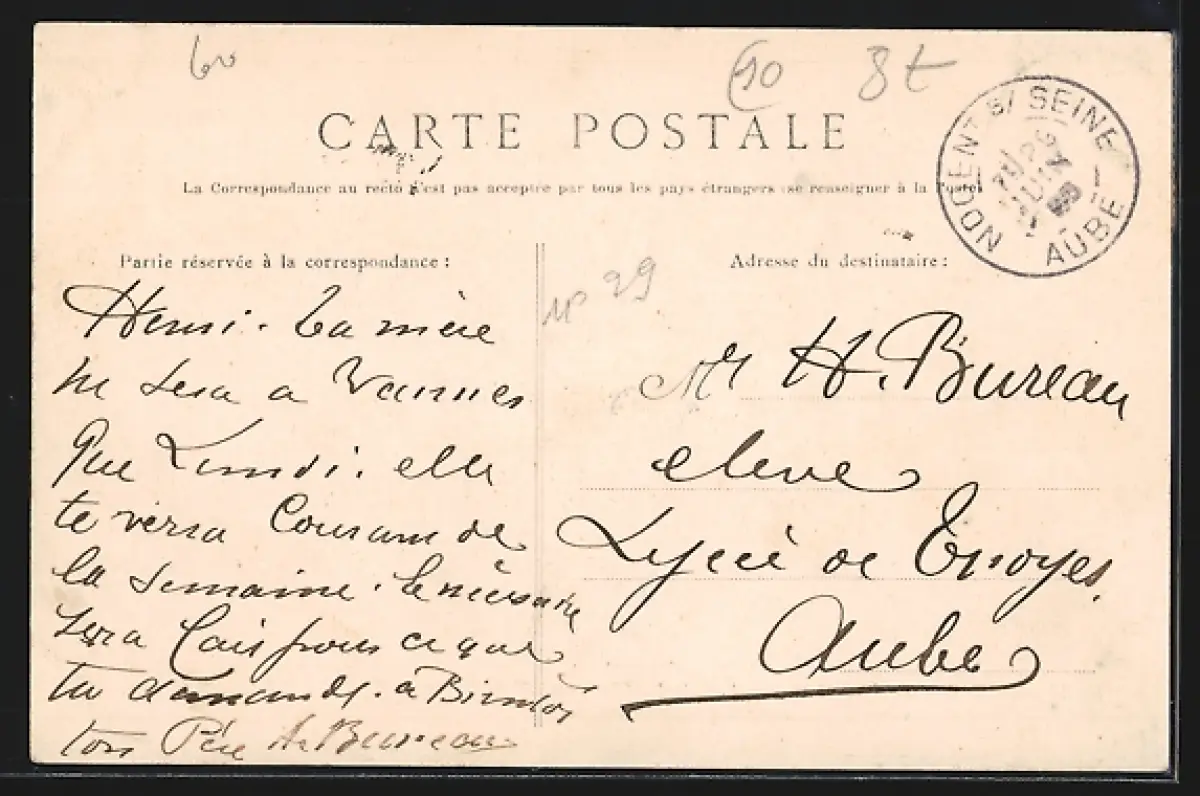 60
10
8 t
CARTE POSTALE
La Correspondance au recto n'est pas acceptée par tous les pays étrangers (se renseigner à la Poste)
NOGENT S/ SEINE
26
JUIN
AUBE
Partie réservée à la correspondance :
Adresse du destinataire :
N° 29
Henri. ta mère
ne sera a Vannes
que Lundi. elle
te verra Courant de
la semaine. le nécessaire
sera fait pour ce que
tu demandes. à Bientôt
ton Père Bureau
Mr H. Bureau
eleve
Lycée de Troyes.
Aube